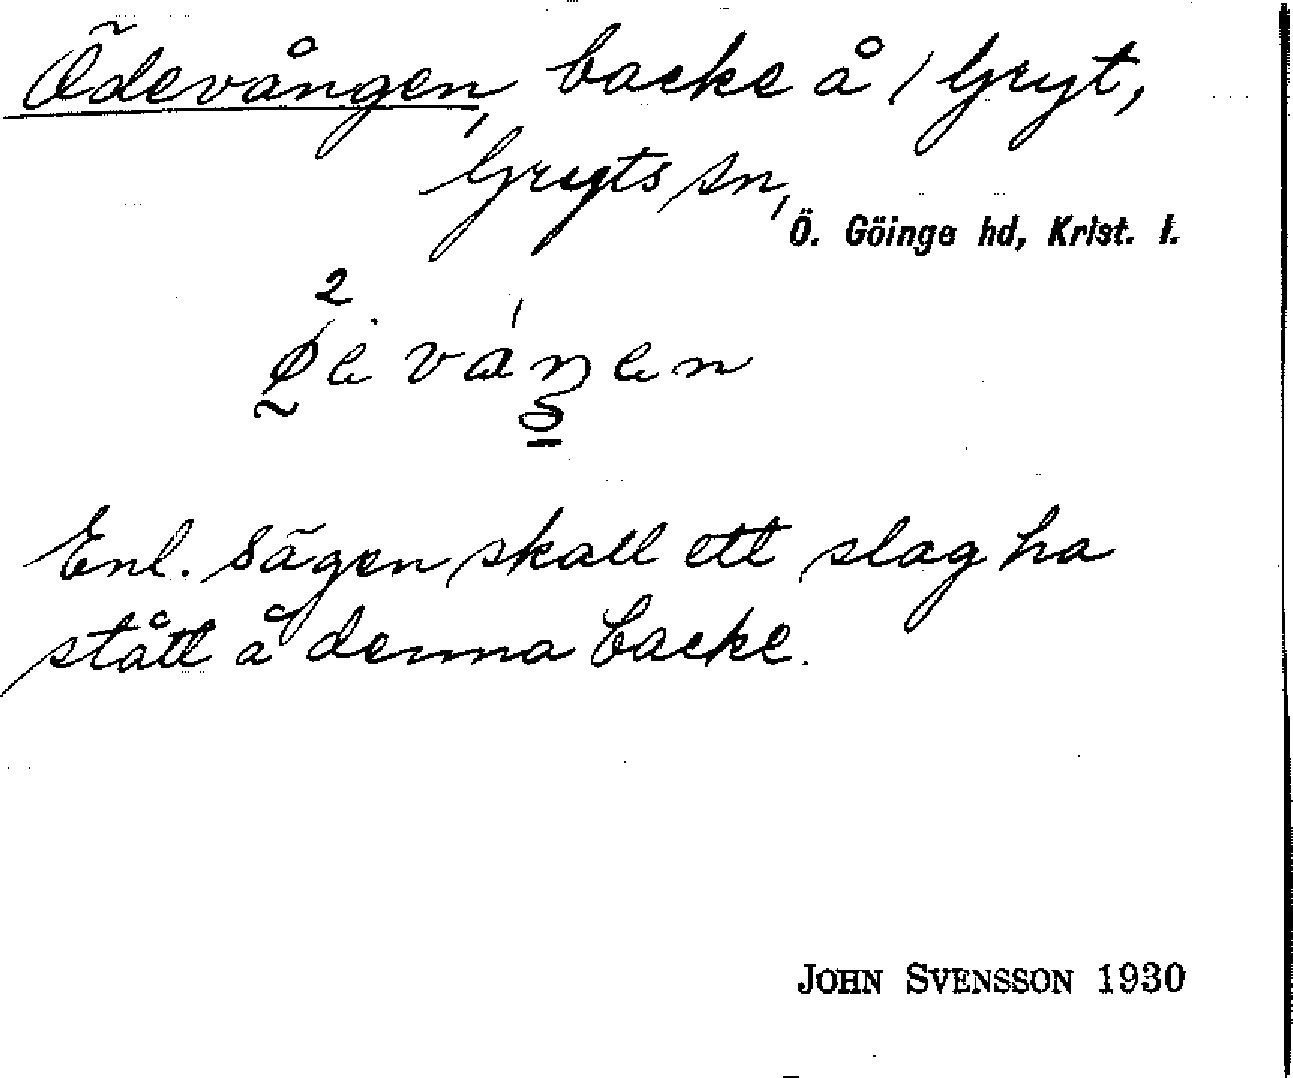 Ödevången, backe å / Gryt,
Gryts sn,
Ö. Göinge hd, Krist. l.
Enl. sägen skall ett slag ha
stått å denna backe.
JOHN SVENSSON 1930